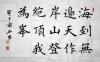 海到無
邊天作
岸山登
絕頂我
為峰